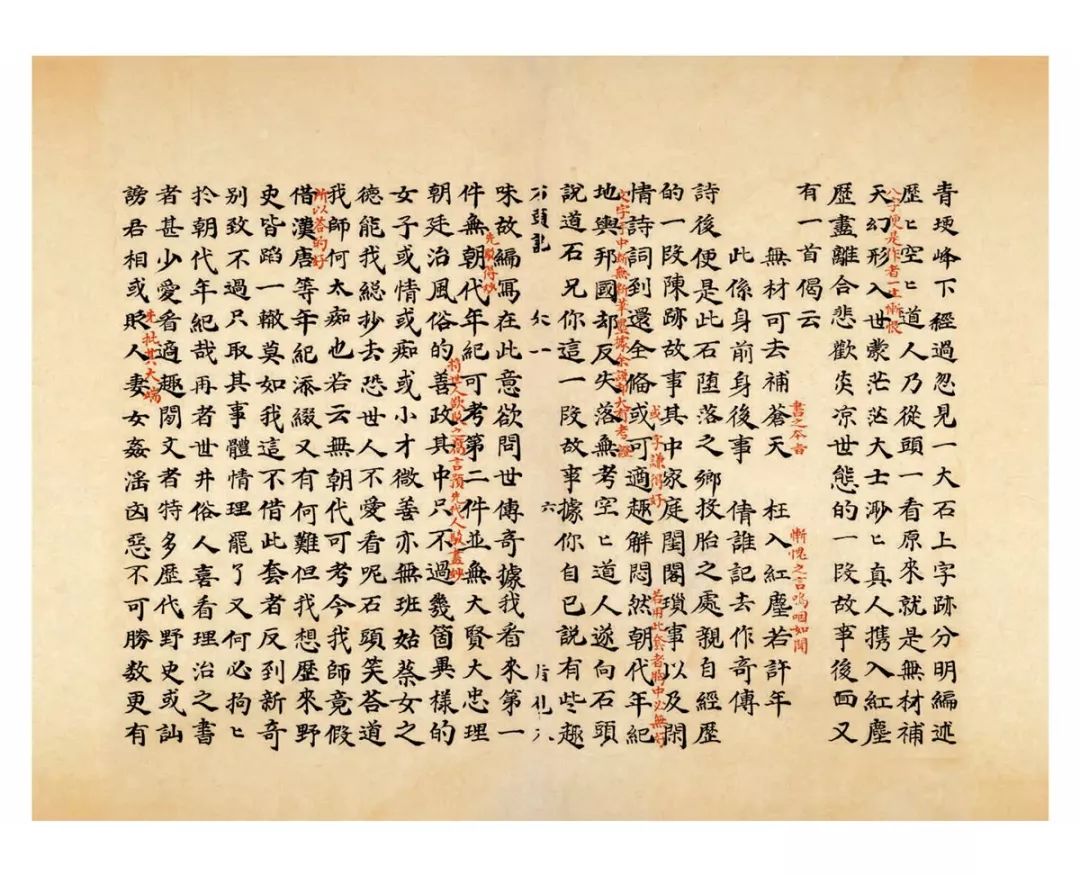 青埂峰下經過忽見一大石上字跡分明編述
歷匕空匕道人乃從頭一看原來就是無材補
八字便是作者一生慚恨
天幻形入世蒙茫茫大士渺匕真人携入紅塵
歷盡離合悲歡炎凉世態的一段故事後面又
有一首偈云
書之本旨
慚愧之言嗚咽如聞
無材可去補蒼天 枉入紅塵若許年
此係身前身後事 倩誰記去作奇傳
詩後便是此石墮落之鄉投胎之處親自經歷
的一段陳跡故事其中家庭閨閣瑣事以及閑
或字謙得好
若用此套者胸中必無好
情詩詞到還全俻或可適趣解悶然朝代年紀
文字手中斷無新筆墨據余說却大有考證
地輿邦國却反失落無考空匕道人遂向石頭
說道石兄你這一段故事據你自己說有些趣
石頭記 六
味故編寫在此意欲問世傳奇據我看來第一
先駁得妙
件無朝代年紀可考第二件並無大賢大忠理
將世人欲駁之腐言預先代人駁盡妙
朝廷治風俗的善政其中只不過幾箇異樣的
女子或情或痴或小才微善亦無班姑蔡女之
德能我縂抄去恐世人不愛看呢石頭笑答道
我師何太痴也若云無朝代可考今我師竟假
所以答的好
借漢唐等年紀添綴又有何難但我想歷來野
史皆蹈一轍莫如我這不借此套者反到新奇
别致不過只取其事體情理罷了又何必拘匕
扵朝代年紀哉再者世井俗人喜看理治之書
者甚少愛看適趣閑文者特多歷代野史或訕
先批其大端
謗君相或貶人妻女姦滛凶惡不可勝数更有